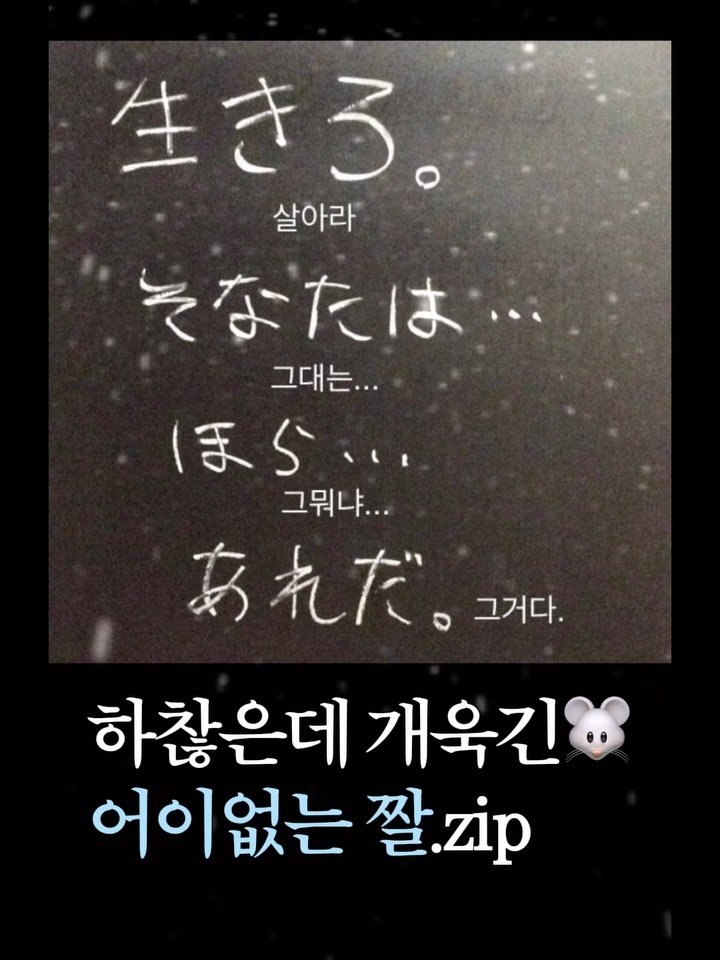 生きろ。
살아라
そなたは…
그대는...
ほら…
그뭐냐...
あれだ。 그거다.
하찮은데 개욱긴🐭
어이없는 짤.zip